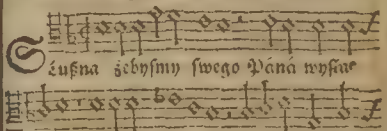 Słußna żebysmy swego Páná wysła⸗